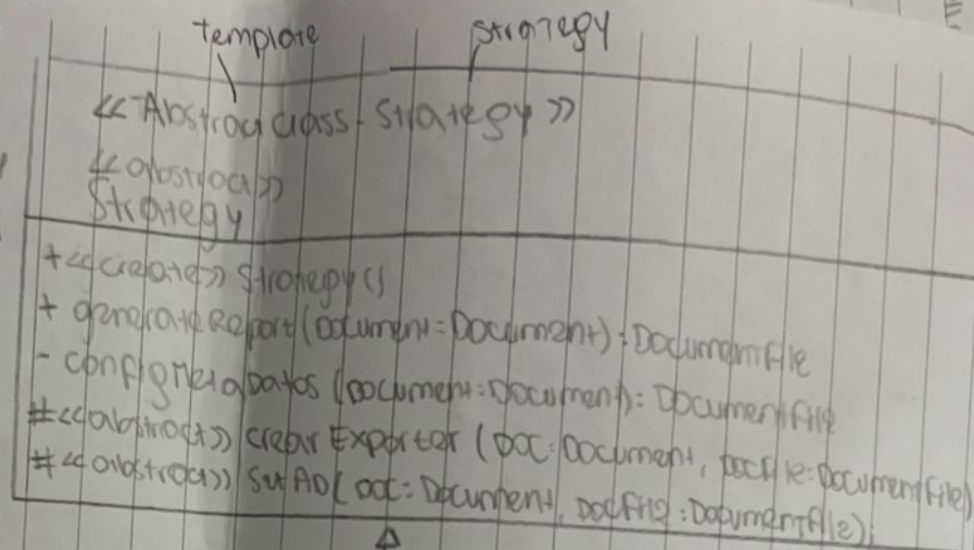 template strategy
<<Abstract class - Strategy>>
<<abstract>>
Strategy
+<<create>> Strategy()
+ generateReport(Document:Document):DocumentFile
- configMetaDatos (Document:Document): DocumentFile
#<<abstract>> crear Exporter (Doc:Document, DocFile:DocumentFile)
#<<abstract>> (Doc:Document, DocFile:DocumentFile);